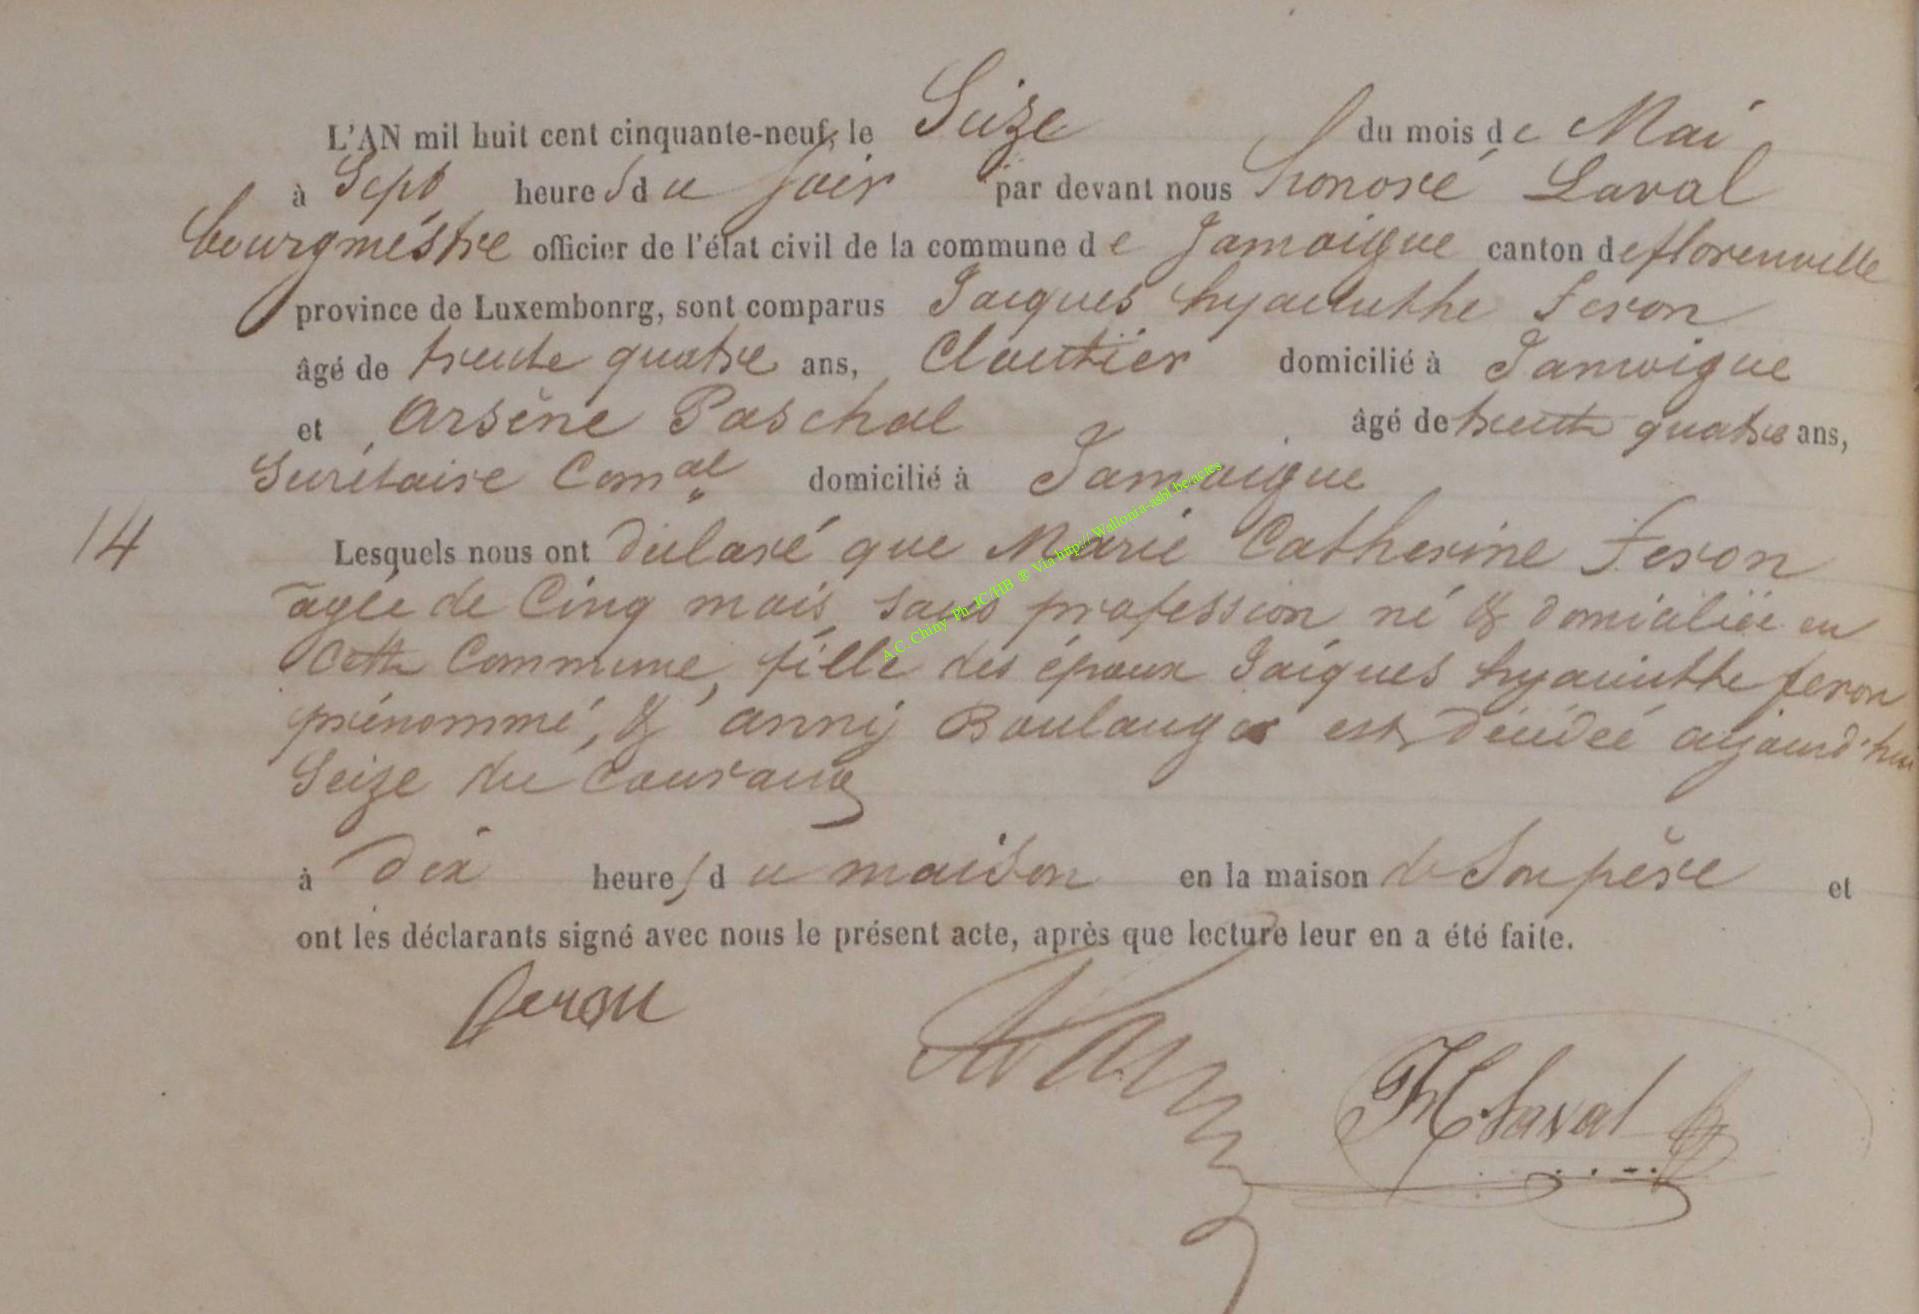 L'AN mil huit cent cinquante-neuf, le Seize du mois de Mai
à Sept heures du soir par devant nous honoré Laval
bourgméstre officier de l'état civil de la commune de Jamoigue canton de florenville
province de Luxembonrg, sont comparus Jacques hyacinthe feron
âgé de trente quatre ans, Cloutier domicilié à Jamoigue
et Arsène Paschal âgé de trente quatre ans,
Secrétaire Comal domicilié à Jamoigue
14
Lesquels nous ont déclaré que Marie Catherine feron
agée de Cinq mois, sans profession né & domiciliée en
cette Commune, fille des époux Jacques hyacinthe feron
prénommé, & anny Boulanger est décédée aujourd'hui
Seize du courant
à dix heures du maison en la maison de Son père et
ont les déclarants signé avec nous le présent acte, après que lecture leur en a été faite.
feron
H Laval
A.C. Chiny Ph. JC/HB ® Via http://Wallonia-asbl.be/actes